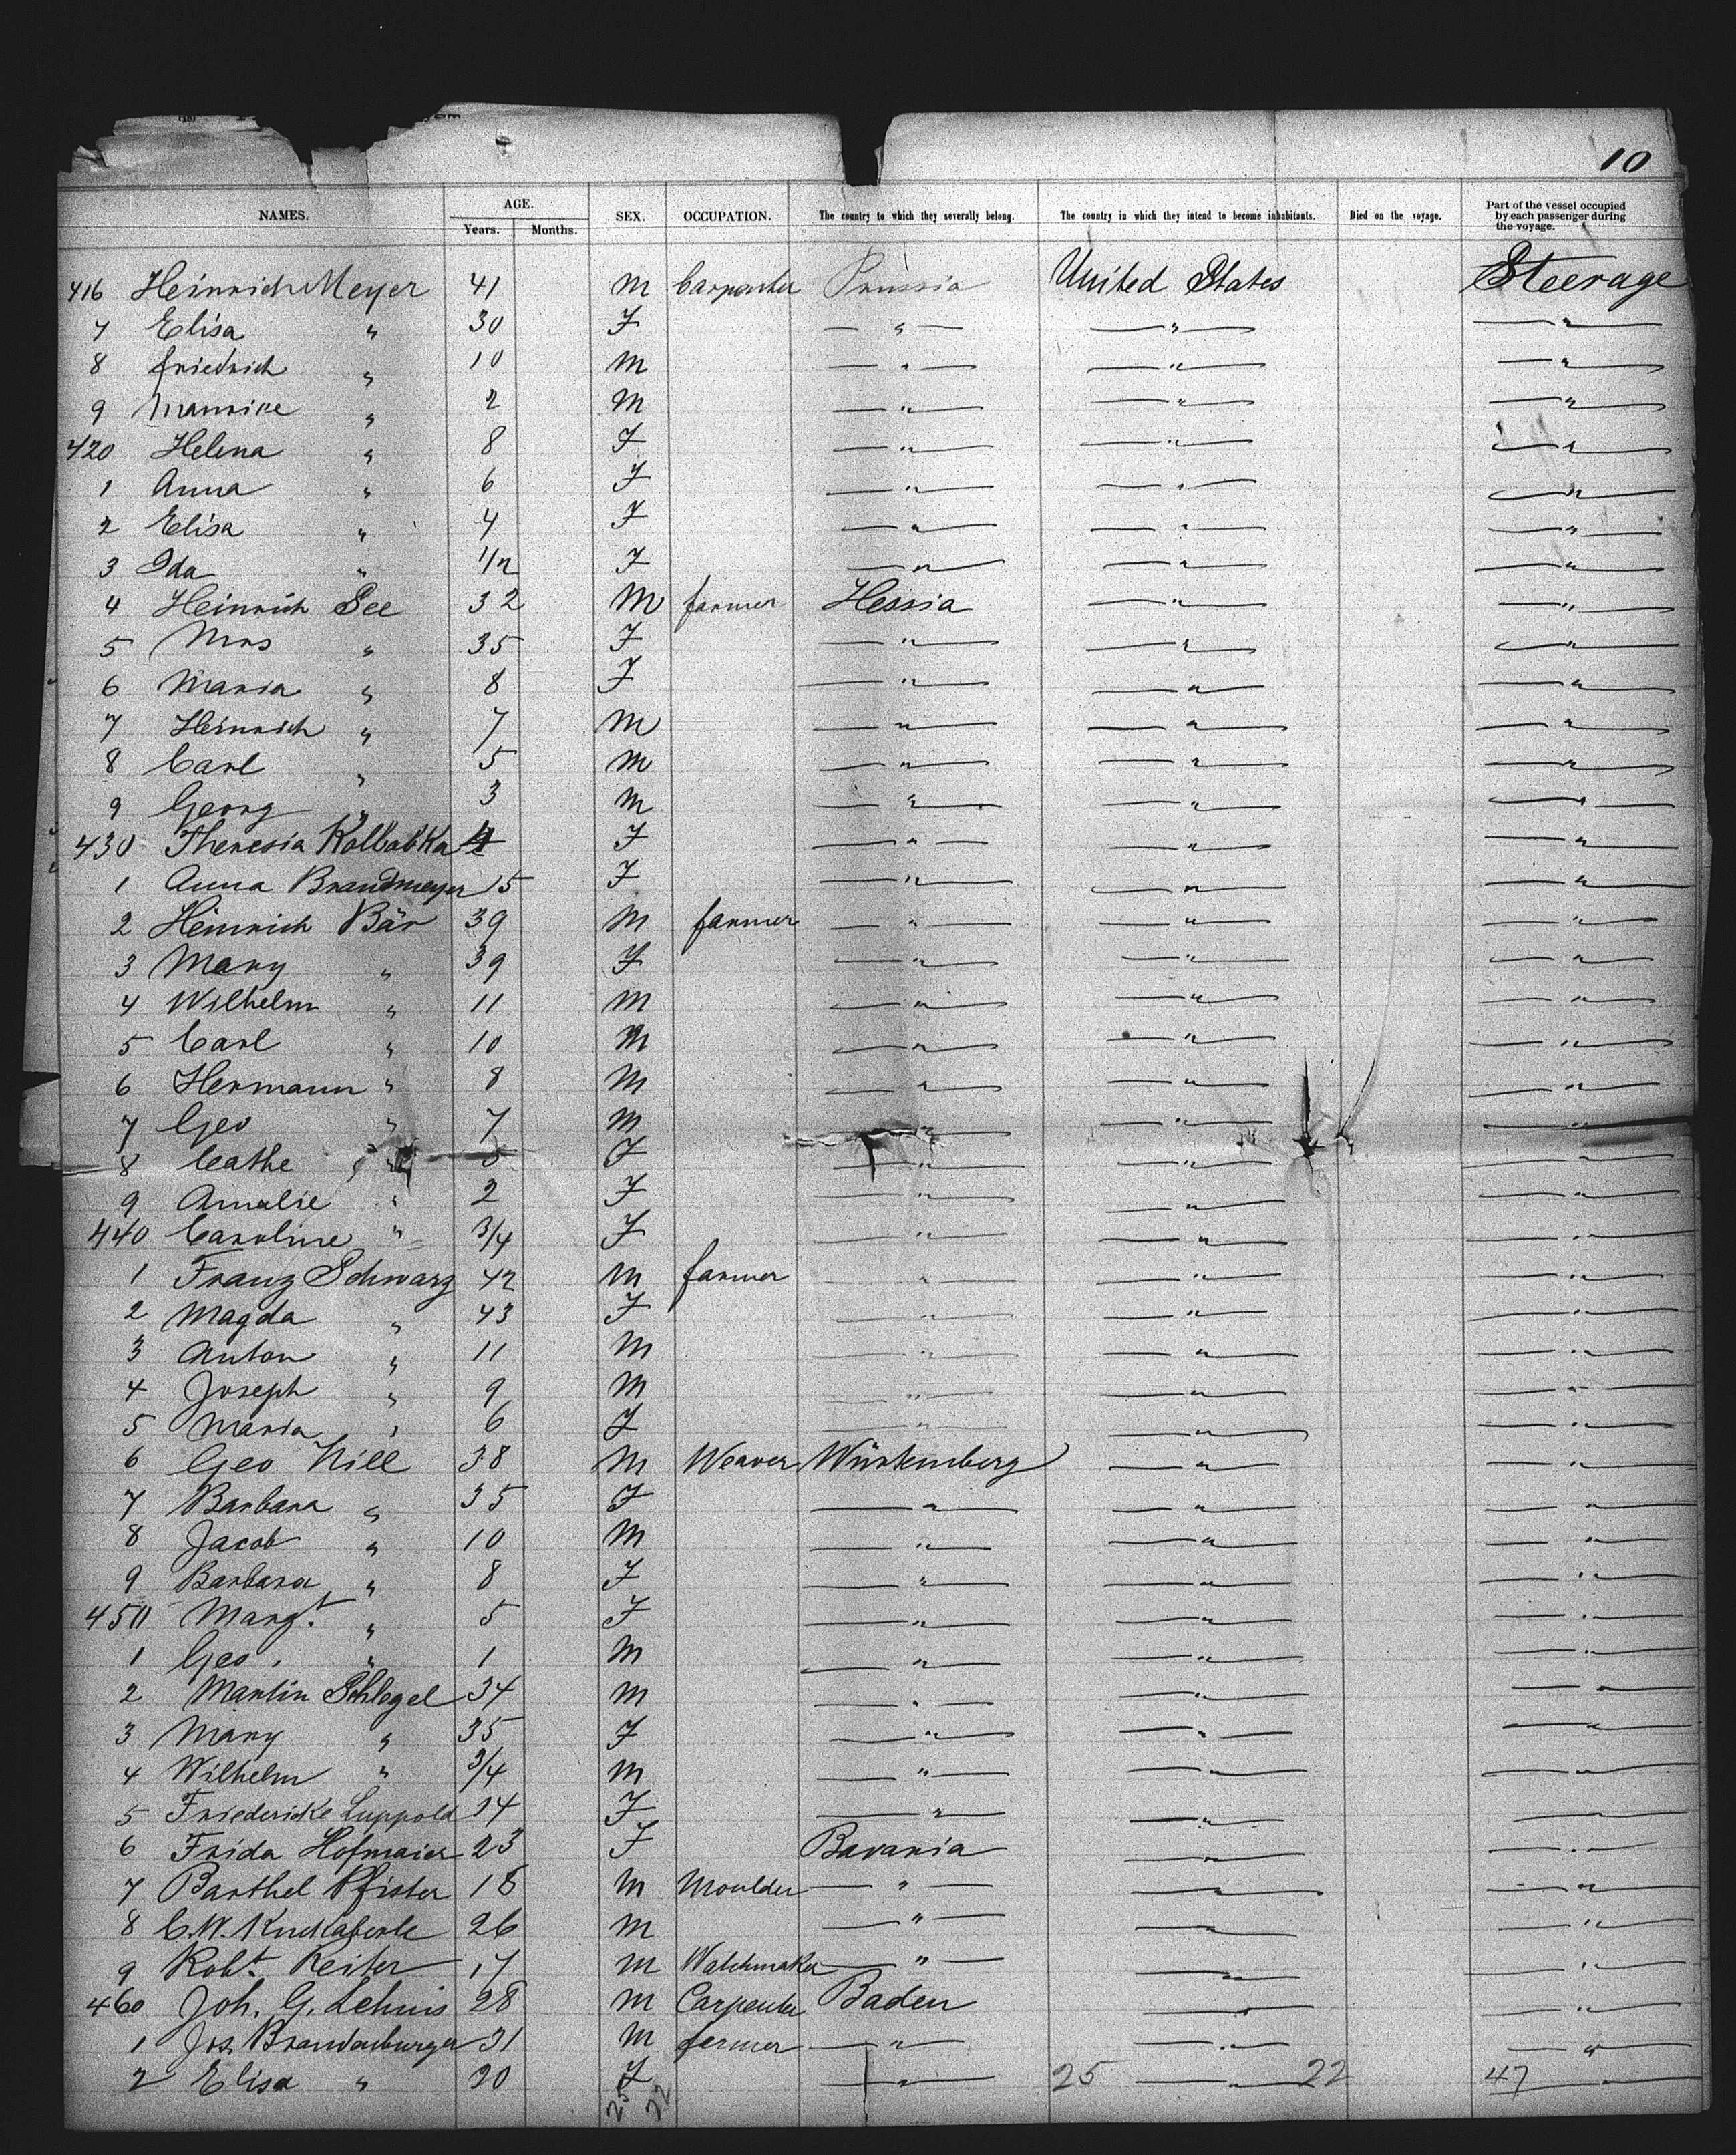 10
NAMES. AGE. SEX. OCCUPATION. The country to which they severally belong. The country in which they intend to become inhabitants. Died on the voyage. Part of the vessel occupied by each passenger during the voyage.
Years. Months.
416 Heinrich Meyer 41 M Carpenter Prussia United States Steerage
7 Elisa " 30 F — " — — " — — " —
8 Friedrich " 10 M — " — — " — — " —
9 Maurice " 2 M — " — — " — — " —
420 Helena " 8 F — " — — " — — " —
1 Anna " 6 F — " — — " — — " —
2 Elisa " 4 F — " — — " — — " —
3 Ida " F — " — — " — — " —
4 Heinrich See 32 M farmer Hessia — " — — " —
5 Mrs " 35 F — " — — " — — " —
6 Maria " 8 F — " — — " — — " —
7 Heinrich " 7 M — " — — " — — " —
8 Carl " 5 M — " — — " — — " —
9 Georg " 3 M — " — — " — — " —
430 Theresia F — " — — " — — " —
1 Anna Brandmeyer 15 F — " — — " — — " —
2 Heinrich Bär 39 M farmer — " — — " — — " —
3 Mary " 39 F — " — — " — — " —
4 Wilhelm " 11 M — " — — " — — " —
5 Carl " 10 M — " — — " — — " —
6 Hermann " 8 M — " — — " — — " —
7 Geo " 7 M — " — — " — — " —
8 Cathe " 5 F — " — — " — — " —
9 Amalie " 2 F — " — — " — — " —
440 Caroline " 3/4 F — " — — " — — " —
1 Franz Schwarz 42 M farmer — " — — " — — " —
2 Magda " 43 F — " — — " — — " —
3 Anton " 11 M — " — — " — — " —
4 Joseph " 9 M — " — — " — — " —
5 Maria " 6 F — " — — " — — " —
6 Geo Nill 38 M Weaver Würtemberg — " — — " —
7 Barbara " 35 F — " — — " — — " —
8 Jacob " 10 M — " — — " — — " —
9 Barbara " 8 F — " — — " — — " —
450 Margt. " 5 F — " — — " — — " —
1 Geo. " 1 M — " — — " — — " —
2 Martin Schlegel 34 M — " — — " — — " —
3 Mary " 35 F — " — — " — — " —
4 Wilhelm " 3/4 M — " — — " — — " —
5 Friedericke Luppold F — " — — " — — " —
6 Frida Hofmaier 23 F Bavaria — " — — " —
7 Barthel Pfister 18 M Moulder — " — — " — — " —
8 C. W. 26 M — " — — " — — " —
9 Robt. Reiter 17 M Watchmaker — " — — " — — " —
460 Joh. G. 28 M Carpenter Baden — " — — " —
1 Jos Brandenburger 31 M farmer — " — — " — — " —
2 Elisa " F — " — 25 — " — 22 47 — " —
25 22